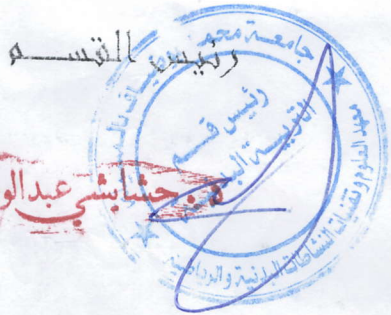 رئيس القسم
جامعة محمد بوضياف بالمسيلة
معهد العلوم وتقنيات النشاطات البدنية والرياضية
رئيس قسم
التربية البدنية
د. حشايشي عبدالو